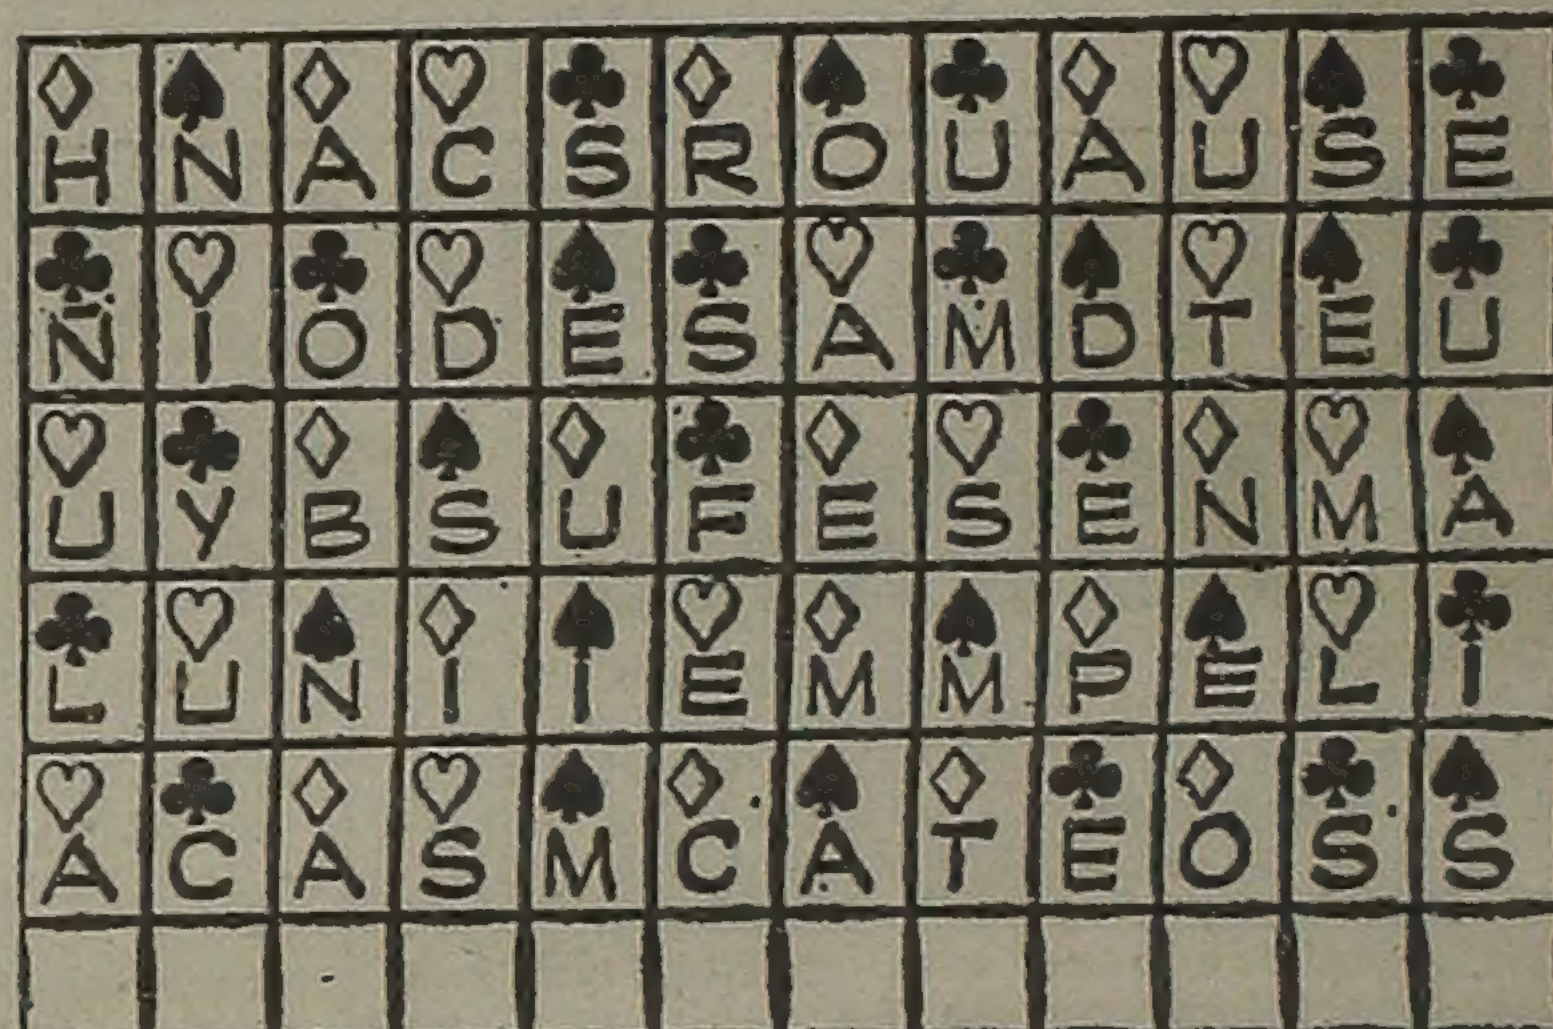 H N A C S R O U A U S E
N I O D E S A M D T E U
U Y B S U F E S E N M A
L U N I I E M M P E L I
A C A S M C A T E O S S